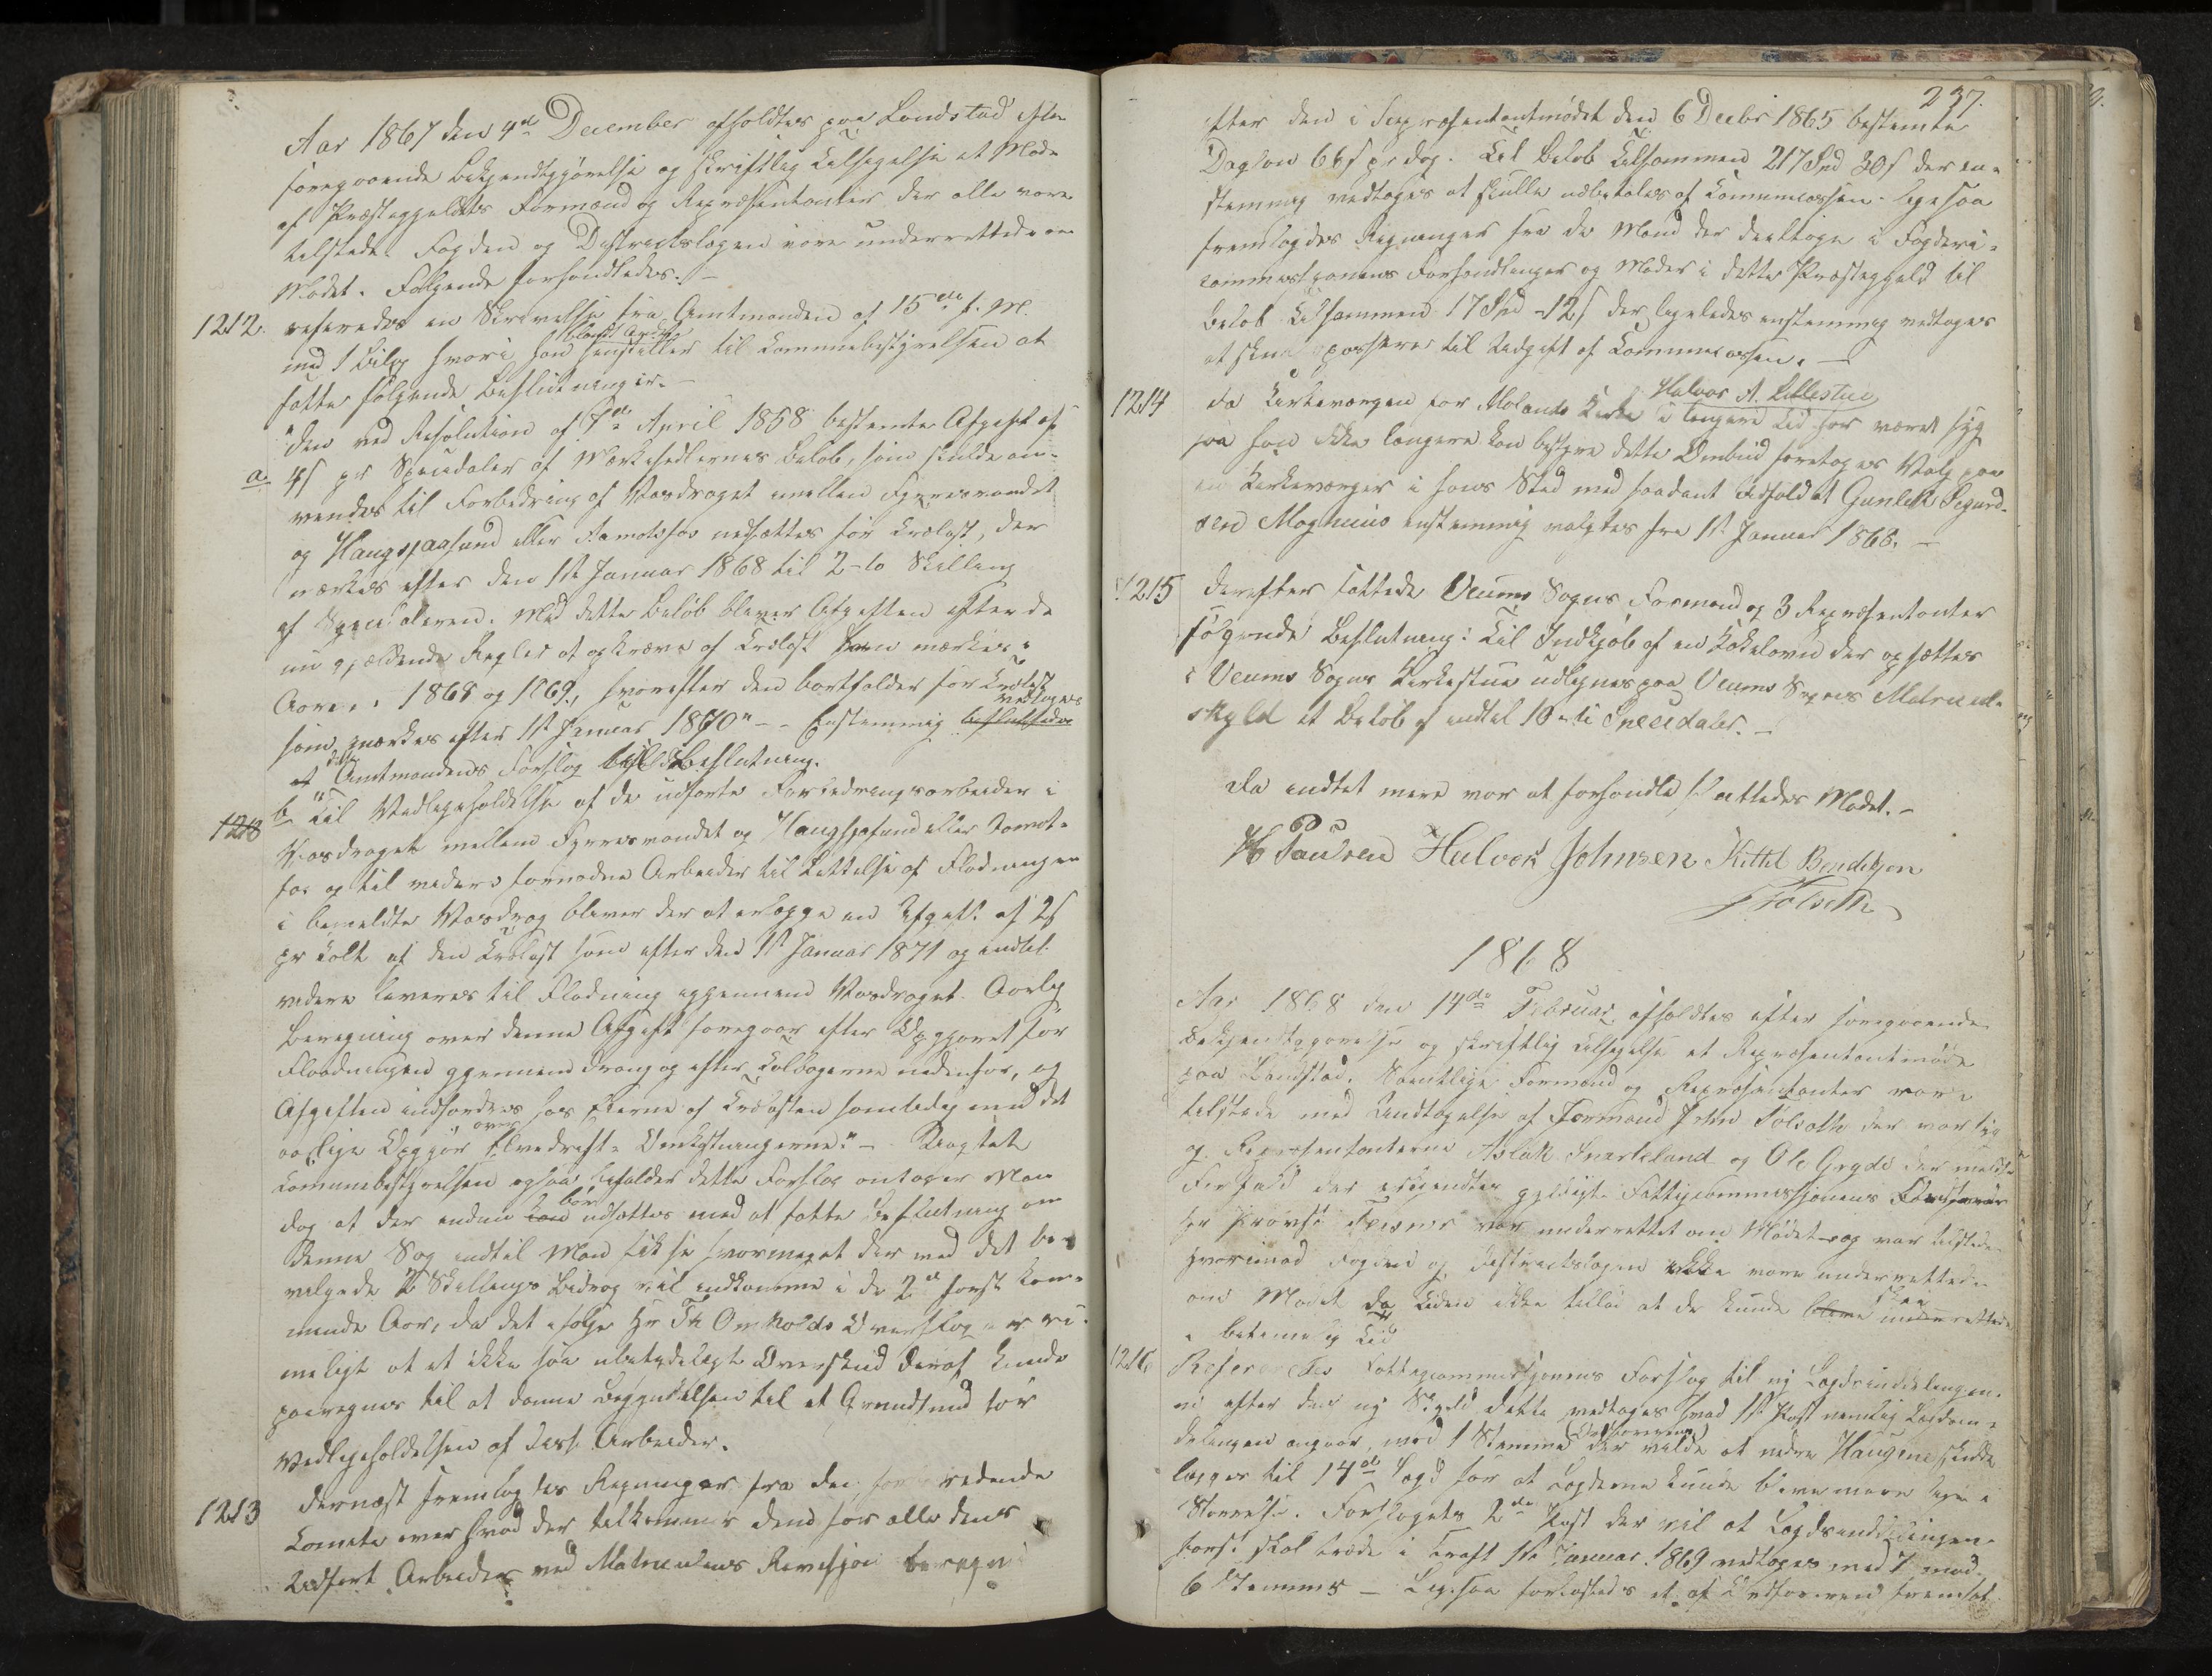 Aar 1867 den 4de December afholdtes paa Landstad efter
foregaaende Bekjendtgjørelse og skriftlig Tilsigelse et Møde
af Præstegjeldets Formænd og Repræsentanter der alle vare
tilstede. Fogden og Districtslægen vare underrettede om
Mødet. Følgende forhandledes:
1212. refereredes en Skrivelse fra Amtmanden af 15de f. M.
blandt Andet
med 1 Bilag hvori han henstiller til Communebestyrelsen at
fatte følgende Beslutninger.
"Den ved Resolution af 7de April 1858 bestemte Afgift af
a. 4ſ pr Speciedaler af Mærkesedlernes Beløb, som skulde an-
vendes til Forbedring af Vasdraget mellem Fyresvandet
og Haugsjaasund eller Aamotsfos nedsættes for Trælast, der
mærkes efter den 1ste Januar 1868 til 2-to Skilling
af Speciedaleren. Med dette Beløb bliver Afgiften efter de
nu gjældende Regler at opkræve af Trælast som mærkes i
Aarene 1868 og 1869, hvorefter den bortfalder for Trælast
vedtoges
som mærkes efter 1ste Januar 1870" - Eenstemmig besluttedes
at Amtmandens Forslag til Beslutning.
1213 b "Til Vedligeholdelse af de udførte Forbedringsarbeider i
Vasdraget mellem Fyresvandet og Haugsjaasund eller Aamot-
fos og til videre fornødne Arbeider til Lettelse af Flødningen
i bemeldte Vasdrag bliver der at erlægge en Afgift af 2ſ
pr Tolt af den Trælast som efter den 1ste Januar 1871 og indtil
videre leveres til Flødning igjennem Vasdraget. Aarlig
Beregning over denne Afgift foregaar efter Opgjøret for
Flødningen gjennem Drang og efter Toldagerne nedenfor, og
Afgiften indfordres hos Eierne af Trælasten samtidig med det
over
aarlige Opgjør Elvedrift-Omkostningerne." - Uagtet
Communebestyrelsen ogsaa bifalder dette Forslag antager Man
bør
dog at der endnu kan udsættes med at fatte Beslutning om
denne Sag indtil Man fik se hvormeget der ved det be-
vilgede 2 Skillings Bidrag vil indkomme i de 2de først kom-
mende Aar, da det ifølge Hr Th Omholds Overslag er ri-
meligt at et ikke saa ubetydeligt Overskud deraf kunde
paaregnes til at danne Begyndelsen til et Grundfond for
Vedligeholdelsen af disse Arbeider.
1213 Dernæst fremlagdes Regninger fra den forberedende
Comite over hvad der tilkommer dem for alle deres
Udført Arbeider ved Matriculens Revisjon beregnet
237.
efter den i Repræsentantmødet den 6 Decbr 1865 bestemte
Dagløn 66ſ pr dag. Til Beløb tilsammen 217 Spd 30ſ der en-
stemmig vedtoges at skulle udbetales af Communecassen. Ligesaa
fremlagdes Regninger fra de Mænd der deeltoge i Fogderi-
commissjonens Forhandlinger og Møder i dette Præstegjeld til
Beløb tilsammen 17 Spd -12ſ der ligeledes enstemmig vedtoges
at skulle passere til Udgift af Communecassen. -
Halvor A. Lillestue
1214 Da Kirkeværgen for Molands Kirke i længere Tid har været syg
saa han ikke længere kan bestyre dette Ombud foretoges Valg paa
en Kirkeværger i hans Sted med saadant Udfald at Gunleik Sigurd-
sen Moghuus enstemmig valgtes fra 1ste Januar 1868. -
1215 Derefter fattede Veums Sogns Formænd og 3 Repræsentanter
følgende Beslutning: Til Indkjøb af en Kakelovn der opsættes
i Veums Sogns Kirkestue udlignes paa Veums Sogns Matricul-
skyld et Beløb af indtil 10-ti Speciedaler. -
Da indtet mere var at forhandle sluttedes Mødet. -
Paulsen Halvor Johnsen Kittil Bendiksen
Tolseth
1868
Aar 1868 den 14de Februar afholdtes efter foregaaende
Bekjendtgjørelse og skriftlig Tilsigelse et Repræsentantmøde
paa Landstad. Samtlige Formænd og Repræsentanter vare
tilstede med Undtagelse af Formand John Tolseth der var syg
og Repræsentanterne Aslak Snarteland og Ole Grgde der meldte
Forfald der erkjendtes gyldigt. Fattigcommissjonens
Hr Provst var underrettet om Mødet og var tilstede
hvorimod Fogden og Districtslægen ikke vare underrettede
om Mødet da Tiden ikke tillod at de kunde blive underrettede
i betimelig Tid
1216 Refereredes Fattigcommissjonens Forslag til ny Lægdsinddelingen.
efter den ny Skyld dette vedtoges hvad 1ste Post nemlig Lægdsind-
(Ordføreren)
delingen angaar, mod 1 Stemme der vilde at nedre Haugene skulde
lægges til 14de Lægd for at Lægderne kunde blive mere lige i
Størrelse. Forslagets 2den Post der vil at Lægdsinddelingen
først skal træde i Kraft 1ste Januar 1869 vedtoges med 7 mod
6 Stemmer - Ligesaa forkastedes et af Ordføreren fremsat